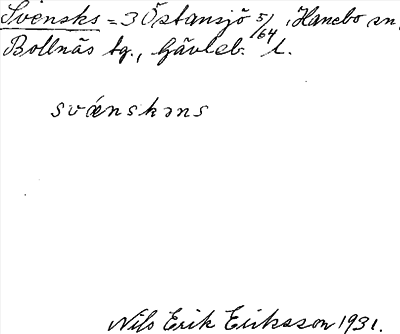 Svensks = 3 Östansjö 5/64, Hanebo sn,
Bollnäs tg., Gävleb. l.
svænskəns
Nils Erik Eriksson 1931.